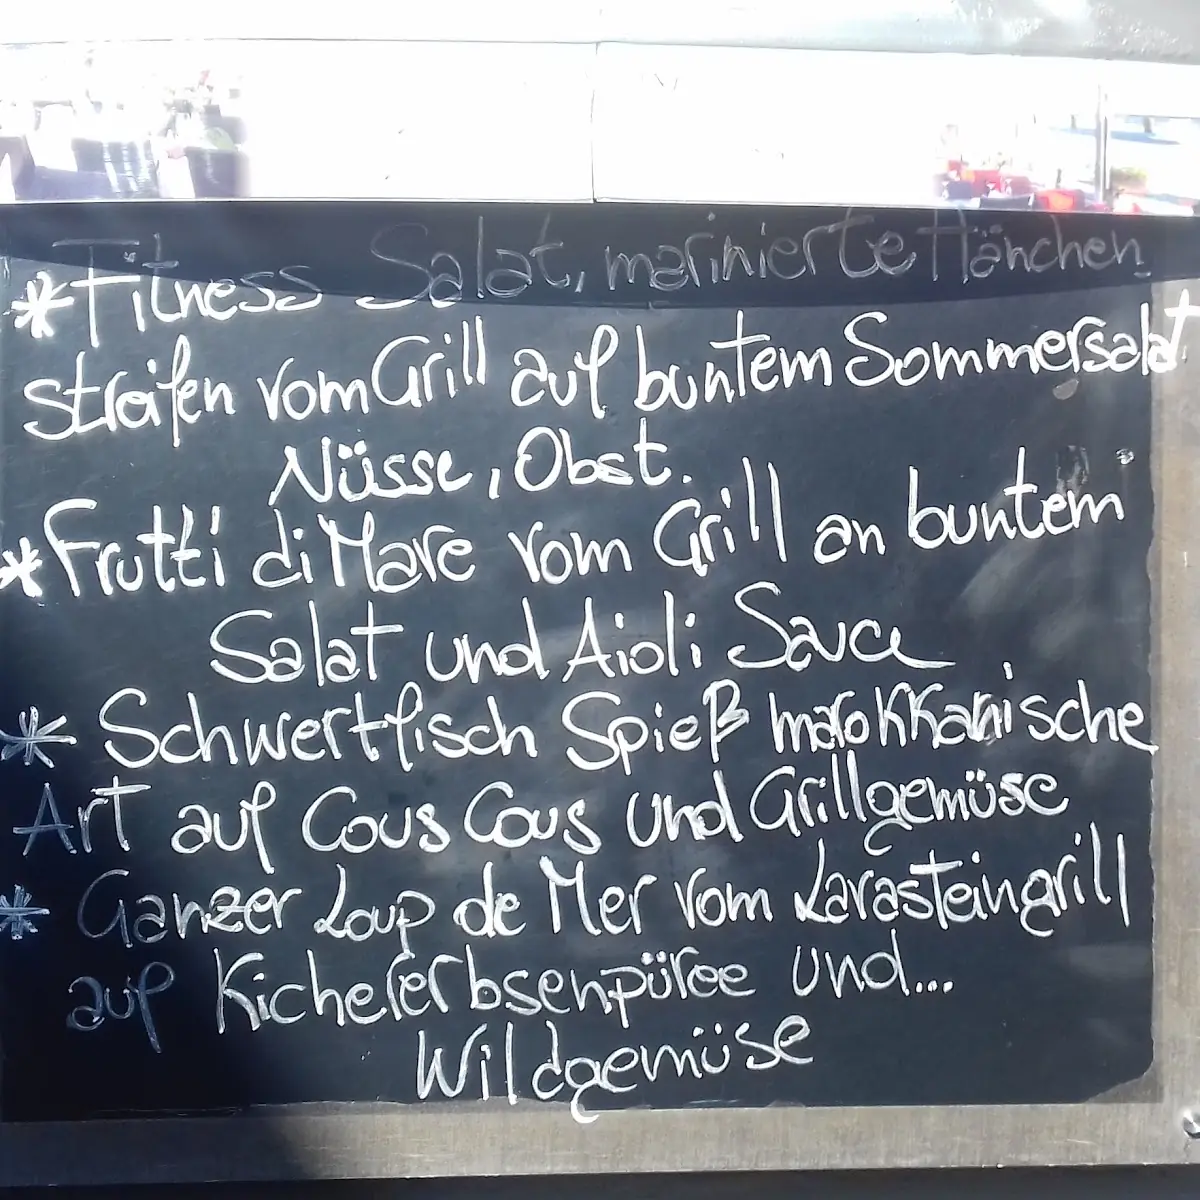 *Fitness Salat, marinierte Hänchen
streifen vom Grill auf buntem Sommersalat
Nüsse, Obst.
*Frutti di Mare vom Grill an buntem
Salat und Aioli Sauce
* Schwertfisch Spieß marokkanische
Art auf Cous Cous und Grillgemüse
* Ganzer Loup de Mer vom Lavasteingrill
auf Kichererbsenpüree und...
Wildgemüse